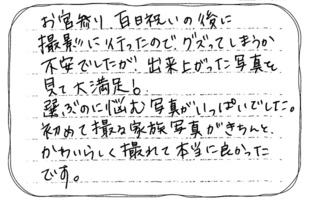 お宮参り、百日祝いの後に
撮影に行ったので、グズってしまうか
不安でしたが、出来上がった写真を
見て大満足♪
選ぶのに悩む写真がいっぱいでした。
初めて撮る家族写真がきちんと、
かわいらしく撮れて本当に良かった
です。